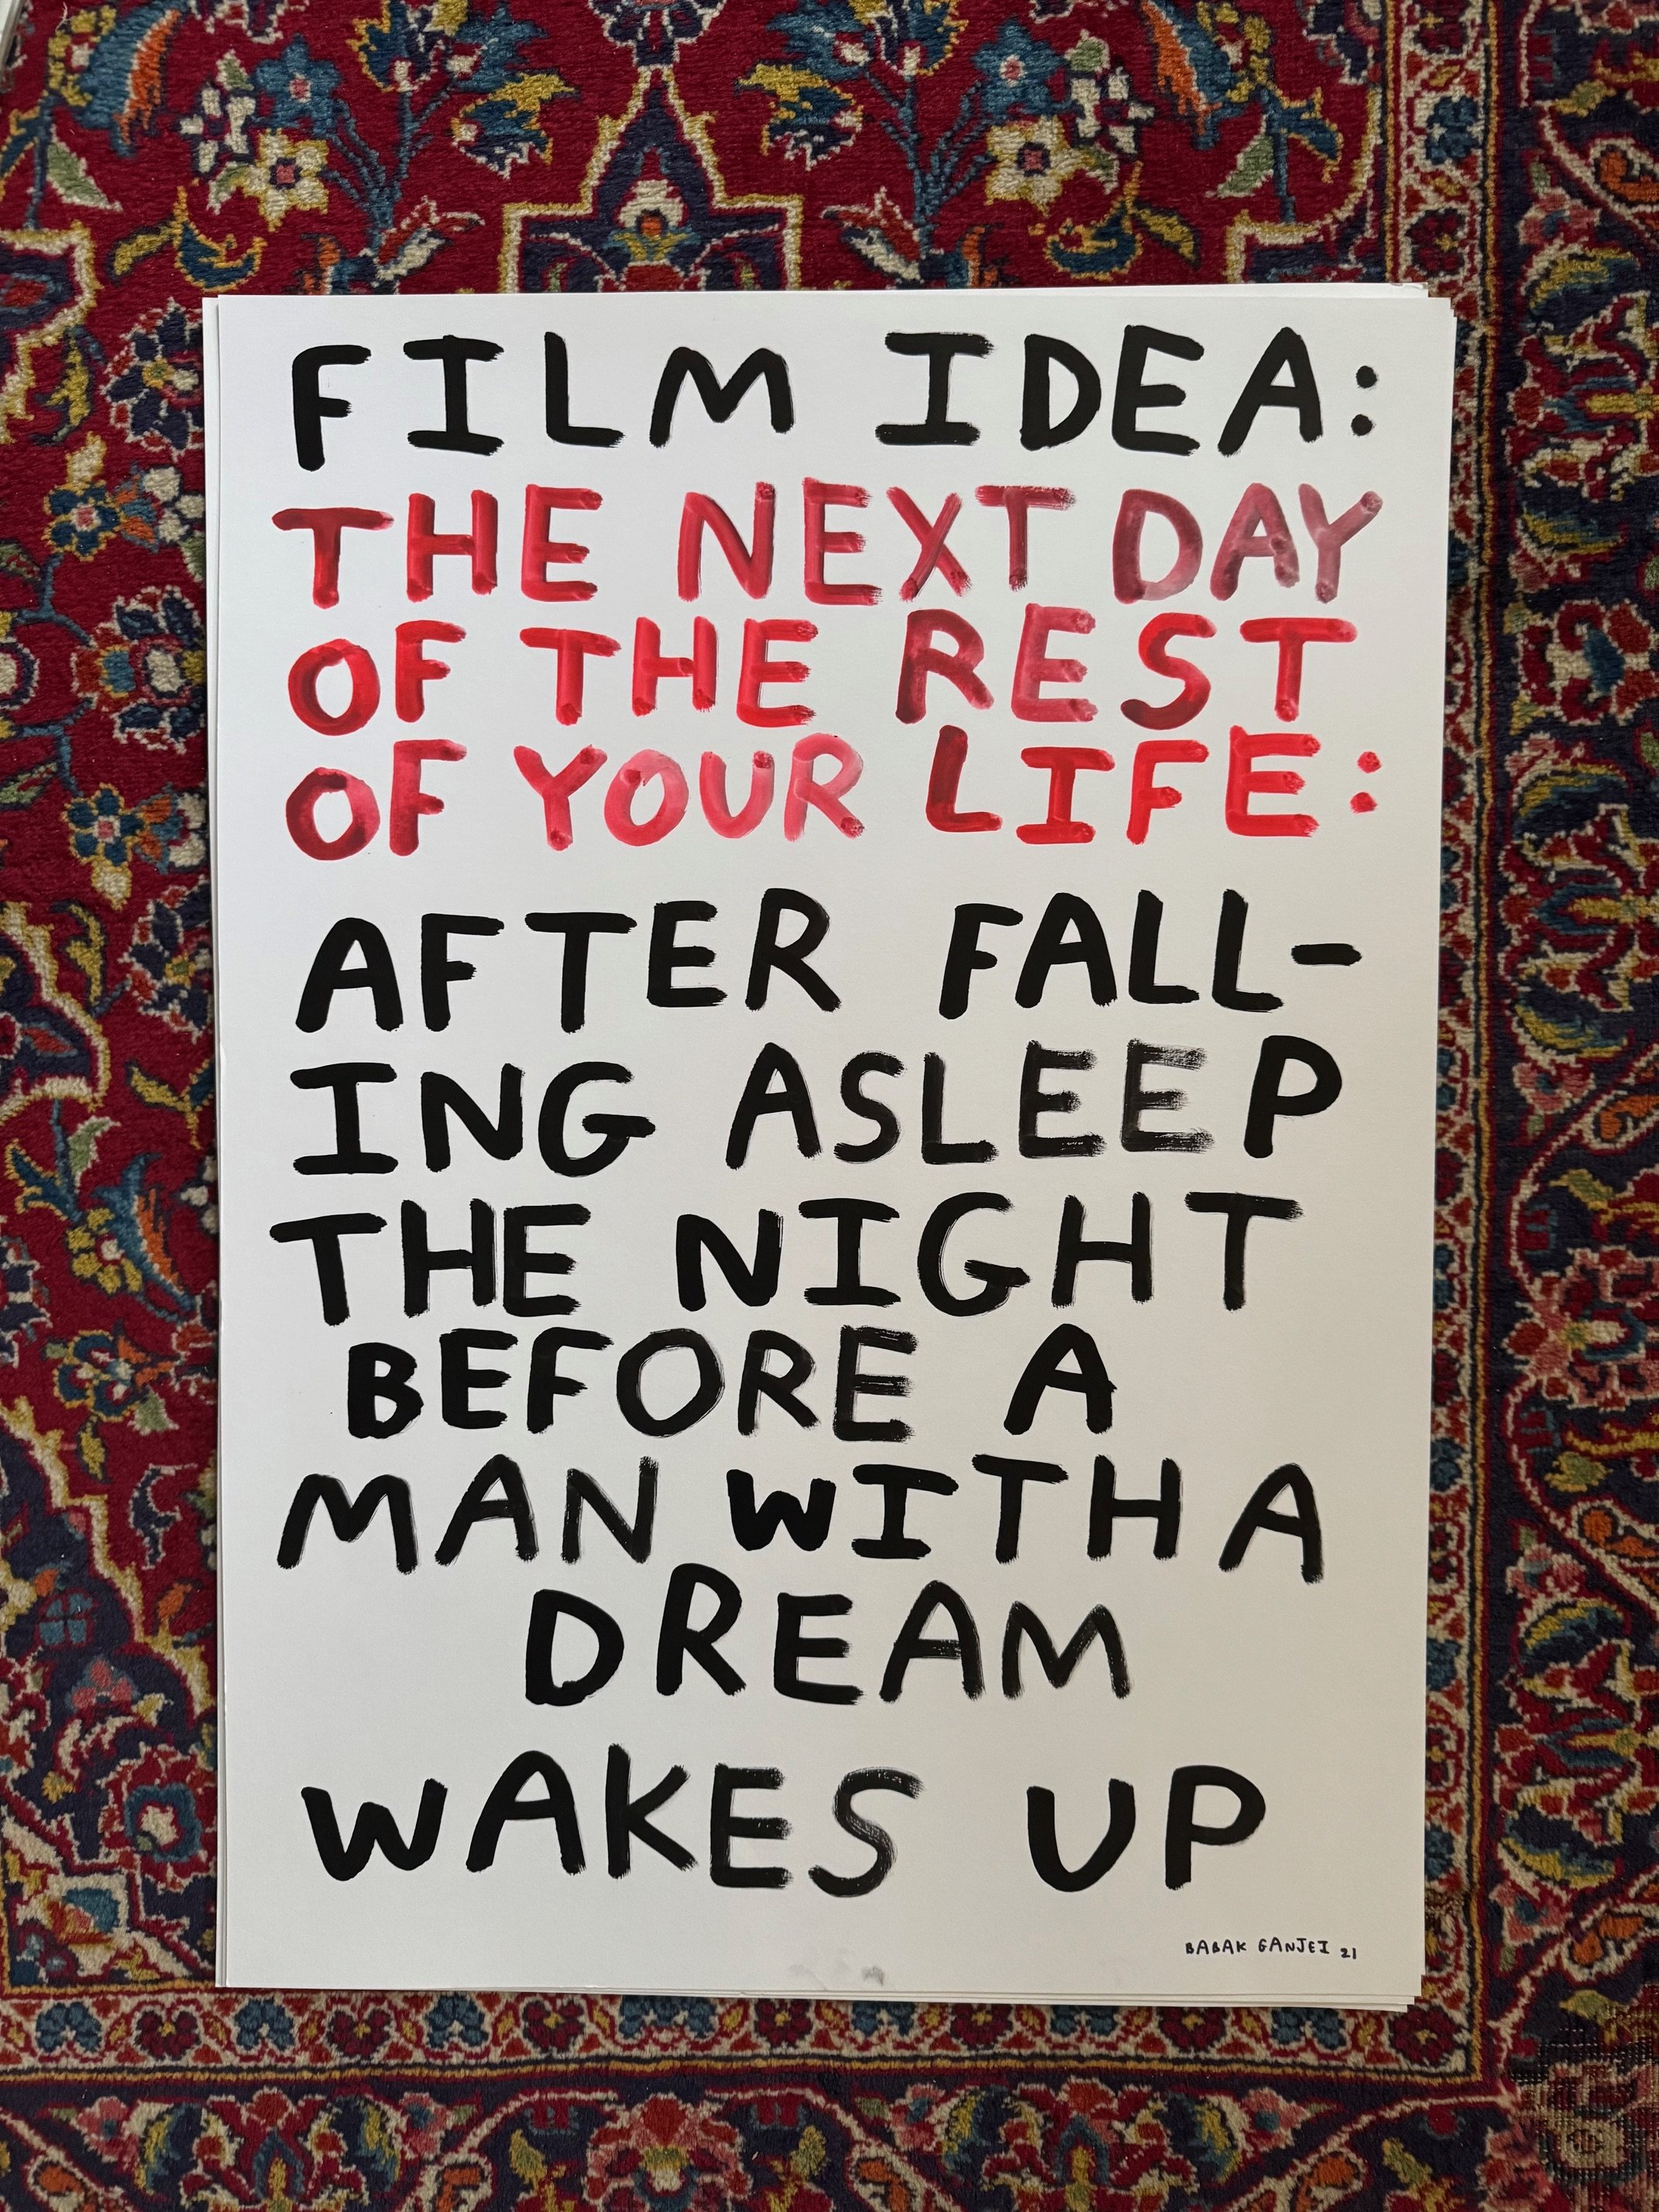 FILM IDEA:
THE NEXT DAY
OF THE REST
OF YOUR LIFE:
AFTER FALL-
ING ASLEEP
THE NIGHT
BEFORE A
MAN WITH A
DREAM
WAKES UP
BABAK GANJEI 21